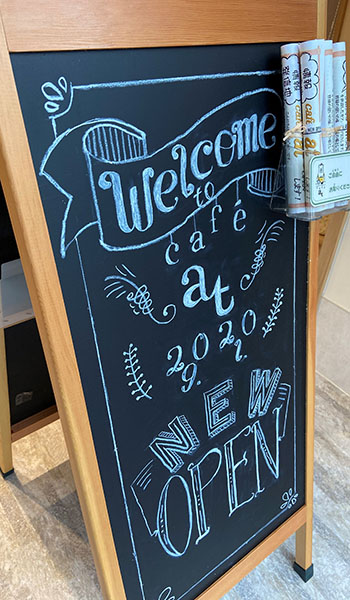 Welcome
to
café
at
2020
9.
NEW
OPEN
ご自由に
お取りください